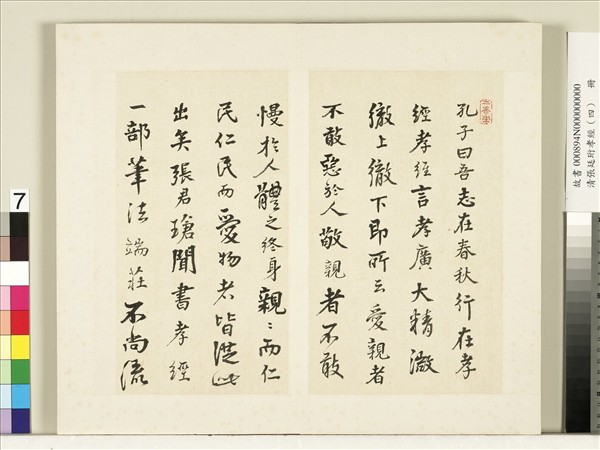 孔子曰吾志在春秋行在孝
經孝經言孝廣大精微
徹上徹下即所云愛親者
不敢惡於人敬親者不敢
慢於人體之終身親〻而仁
民仁民而愛物者皆從此
出矣張君瑲聞書孝經
一部筆法端莊不尚流
故書 000894N000000000
清張廷珩孝經（四）
7